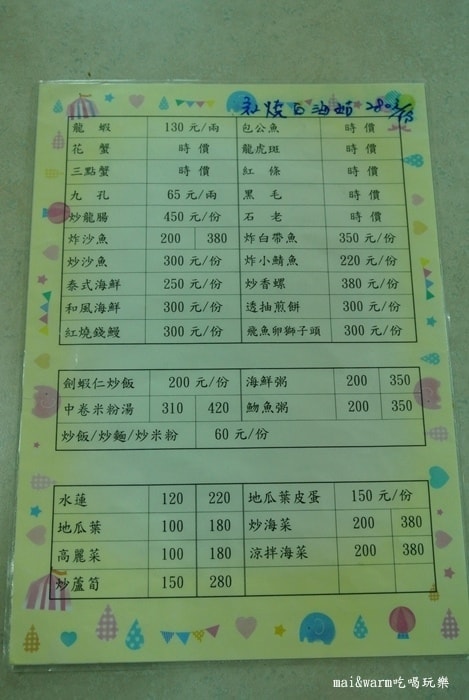 紅燒白油蛤 280元/份
龍蝦 130元/兩 包公魚 時價
花蟹 時價 龍虎斑 時價
三點蟹 時價 紅條 時價
九孔 65元/兩 黑毛 時價
炒龍腸 450元/份 石老 時價
炸沙魚 200 380 炸白帶魚 350元/份
炒沙魚 300元/份 炸小鯖魚 220元/份
泰式海鮮 250元/份 炒香螺 380元/份
和風海鮮 300元/份 透抽煎餅 300元/份
紅燒錢鰻 300元/份 飛魚卵獅子頭 300元/份
劍蝦仁炒飯 200元/份 海鮮粥 200 350
中卷米粉湯 310 420 魩魚粥 200 350
炒飯/炒麵/炒米粉 60元/份
水蓮 120 220 地瓜葉皮蛋 150元/份
地瓜葉 100 180 炒海菜 200 380
高麗菜 100 180 涼拌海菜 200 380
炒蘆筍 150 280
mai&warm吃喝玩樂